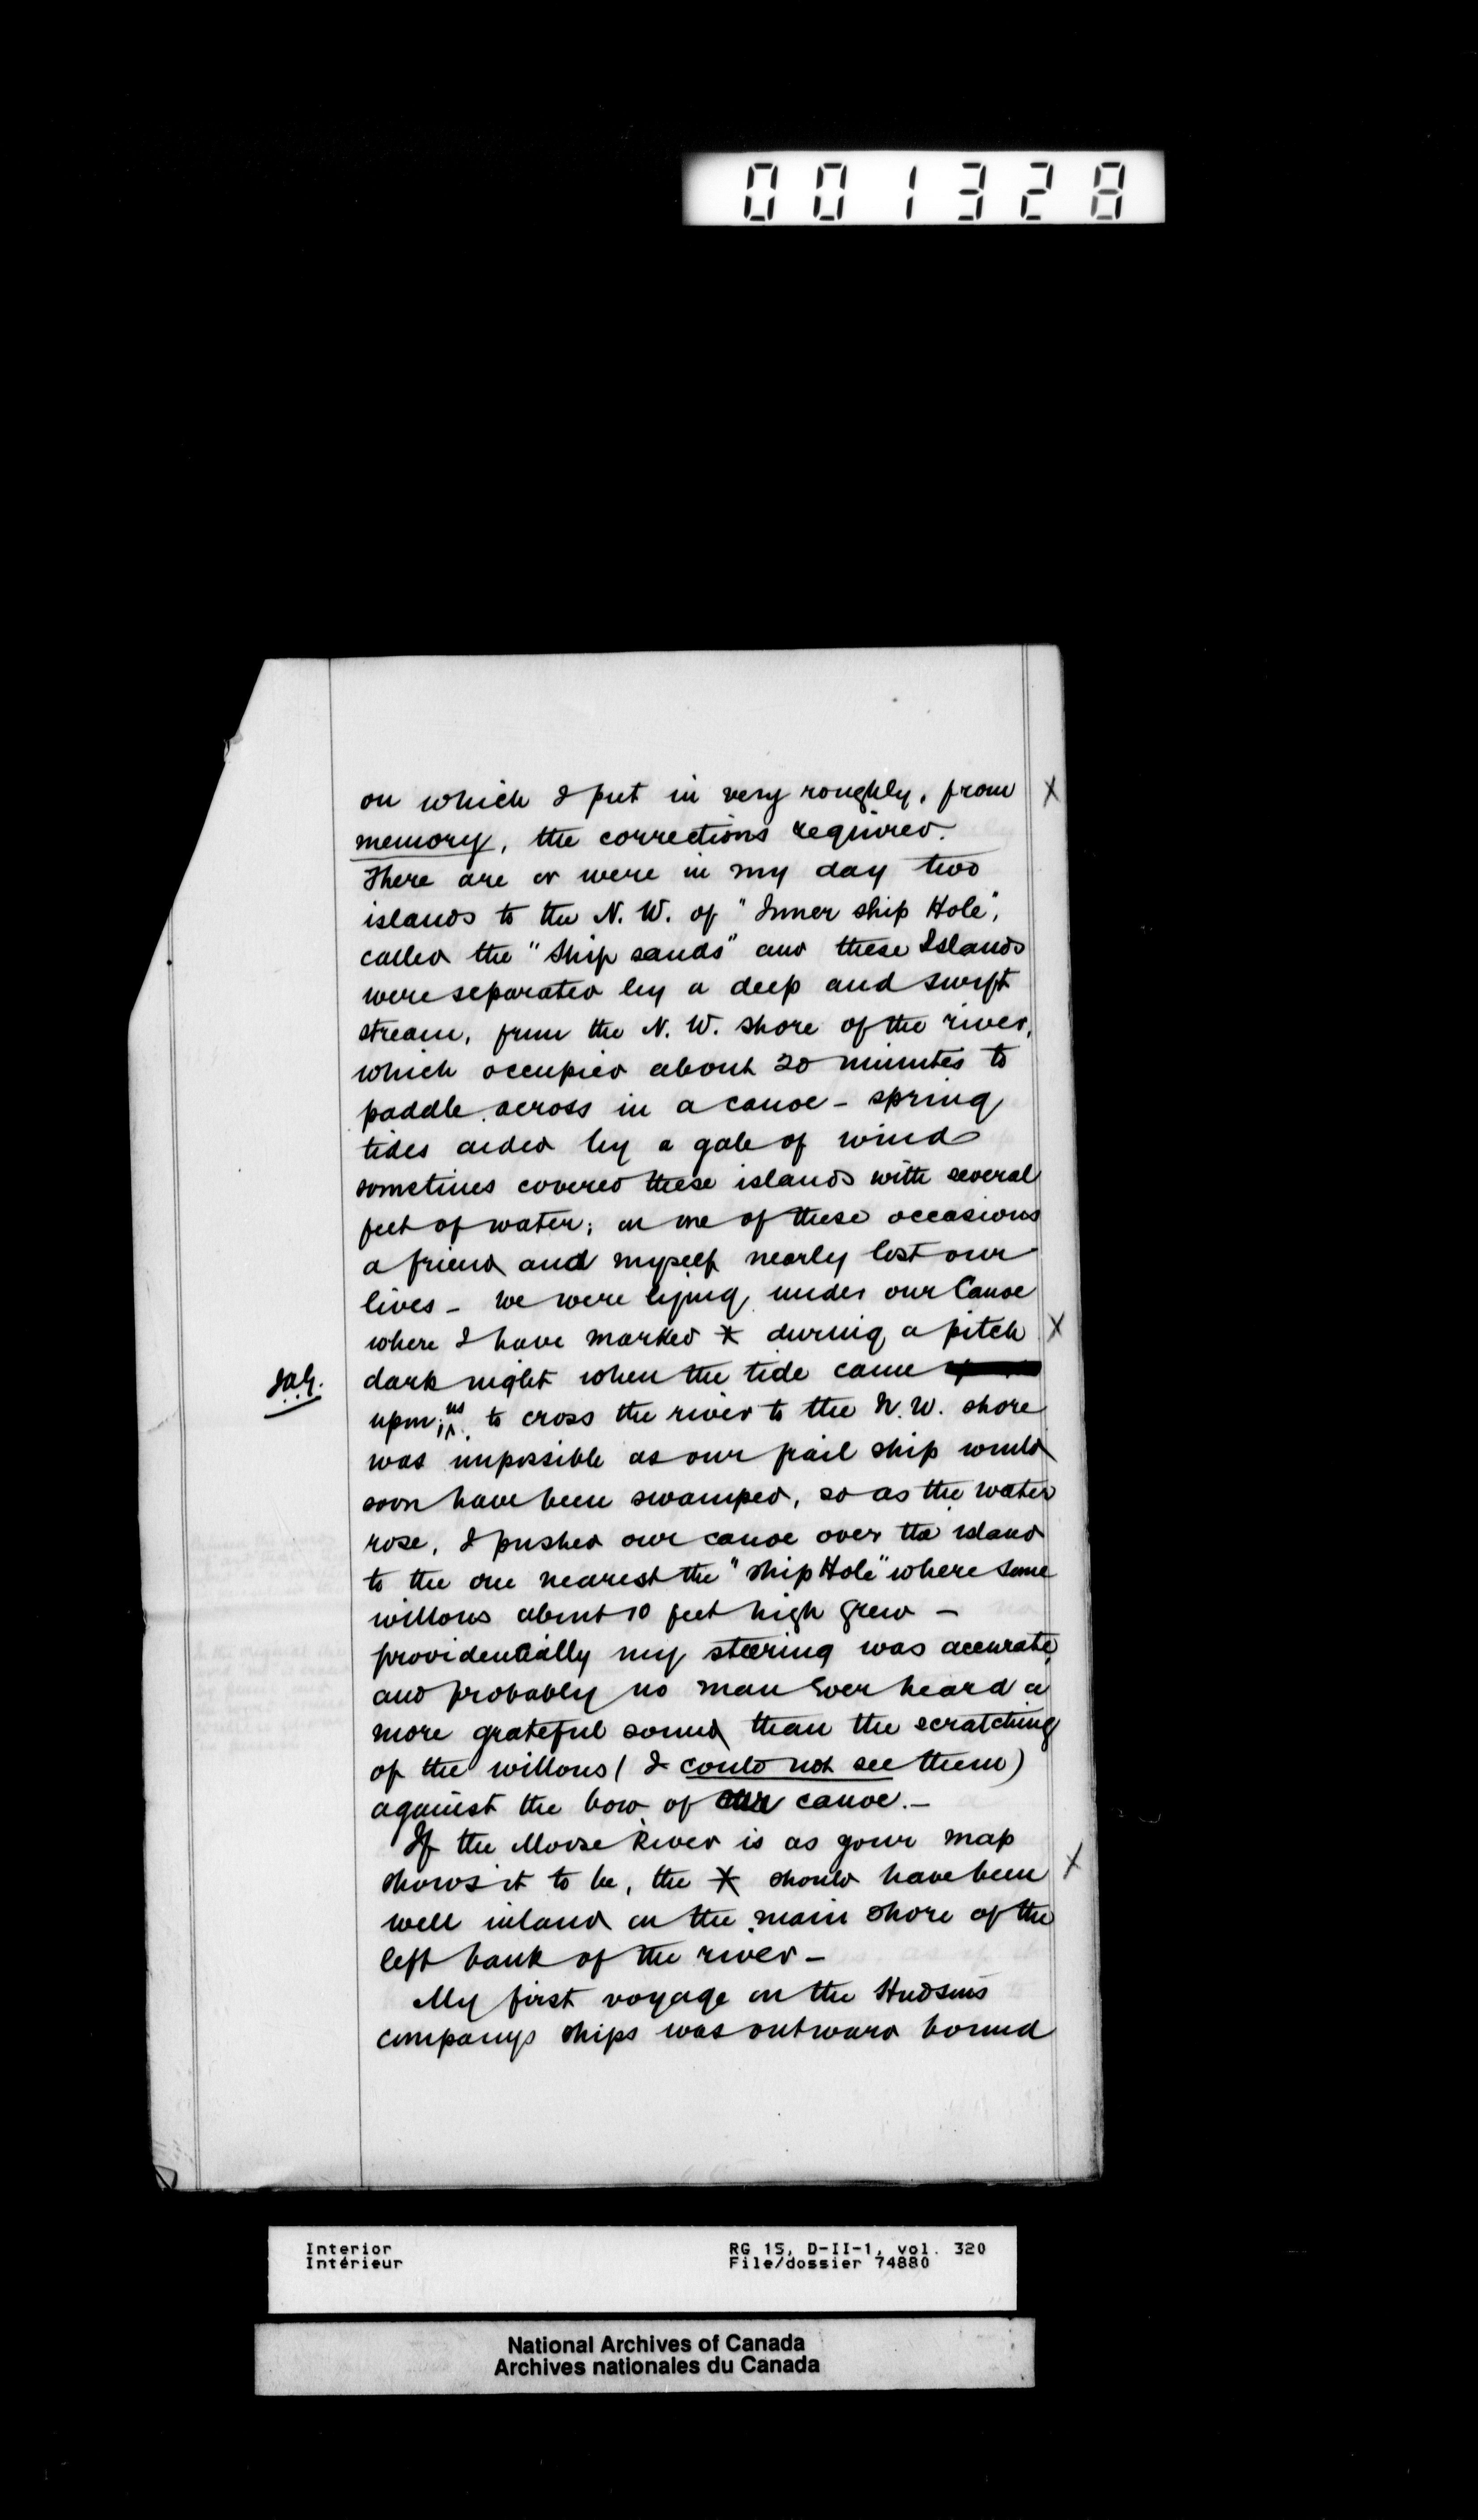 001328
on which I put in very roughly, from X
memory, the corrections required.
There are or were in my day two
islands to the N. W. of "Inner ship Hole",
called the "Ship sands" and these Islands
were separated by a deep and swift
stream, from the N. W. shore of the river,
which occupied about 20 minutes to
paddle across in a canoe - spring
tides aided by a gale of wind
sometimes covered these islands with several
feet of water; on one of these occasions
a friend and myself nearly lost our
lives - we were lying under our Canoe
where I have marked * during a pitch X
dark night when the tide came
upon us; to cross the river to the N.W. shore
was impossible as our frail ship would
soon have been swamped, so as the water
rose, I pushed our canoe over the island
to the one nearest the "ship Hole" where some
willows about 10 feet high grew -
providentially my steering was accurate,
and probably no man ever heard a
more grateful sound than the scratching
of the willows (I could not see them)
against the bow of our canoe. -
If the Moose River is as your map
shows it to be, the * should have been X
well inland on the main shore of the
left bank of the river -
My first voyage on the Hudsons
companys ships was outward bound
Interior
Intérieur
RG 15, D-II-1, vol. 320
File/dossier 74880
National Archives of Canada
Archives nationales du Canada